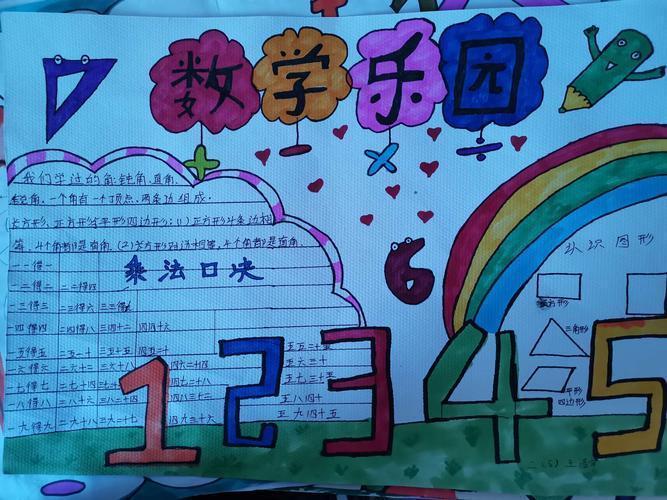 数学乐园
+ - × ÷
我们学过的角:钝角、直角、
锐角。一个角有一个顶点,两条边组成。
长方形、正方形、平形四边形:(1)正方形4条边相
等,4个角都是直角。(2)长方形对边相等,4个角都是直角。
乘法口决
一一得一
一二得二 二二得四
一三得三 二三得六 三三得九
一四得四 二四得八 三四十二 四四十六
一五得五 二五一十 三五十五 四五二十 五五二十五
一六得六 二六十二 三六十八 四六二十四 五六三十
一七得七 二七十四 三七二十一 四七二十八 五七三十五
一八得八 二八十六 三八二十四 四八三十二 五八四十
一九得九 二九十八 三九二十七 四九三十六 五九四十五
6
认识图形
长方形
三角形
平形
四边形
1 2 3 4 5
二(5)王